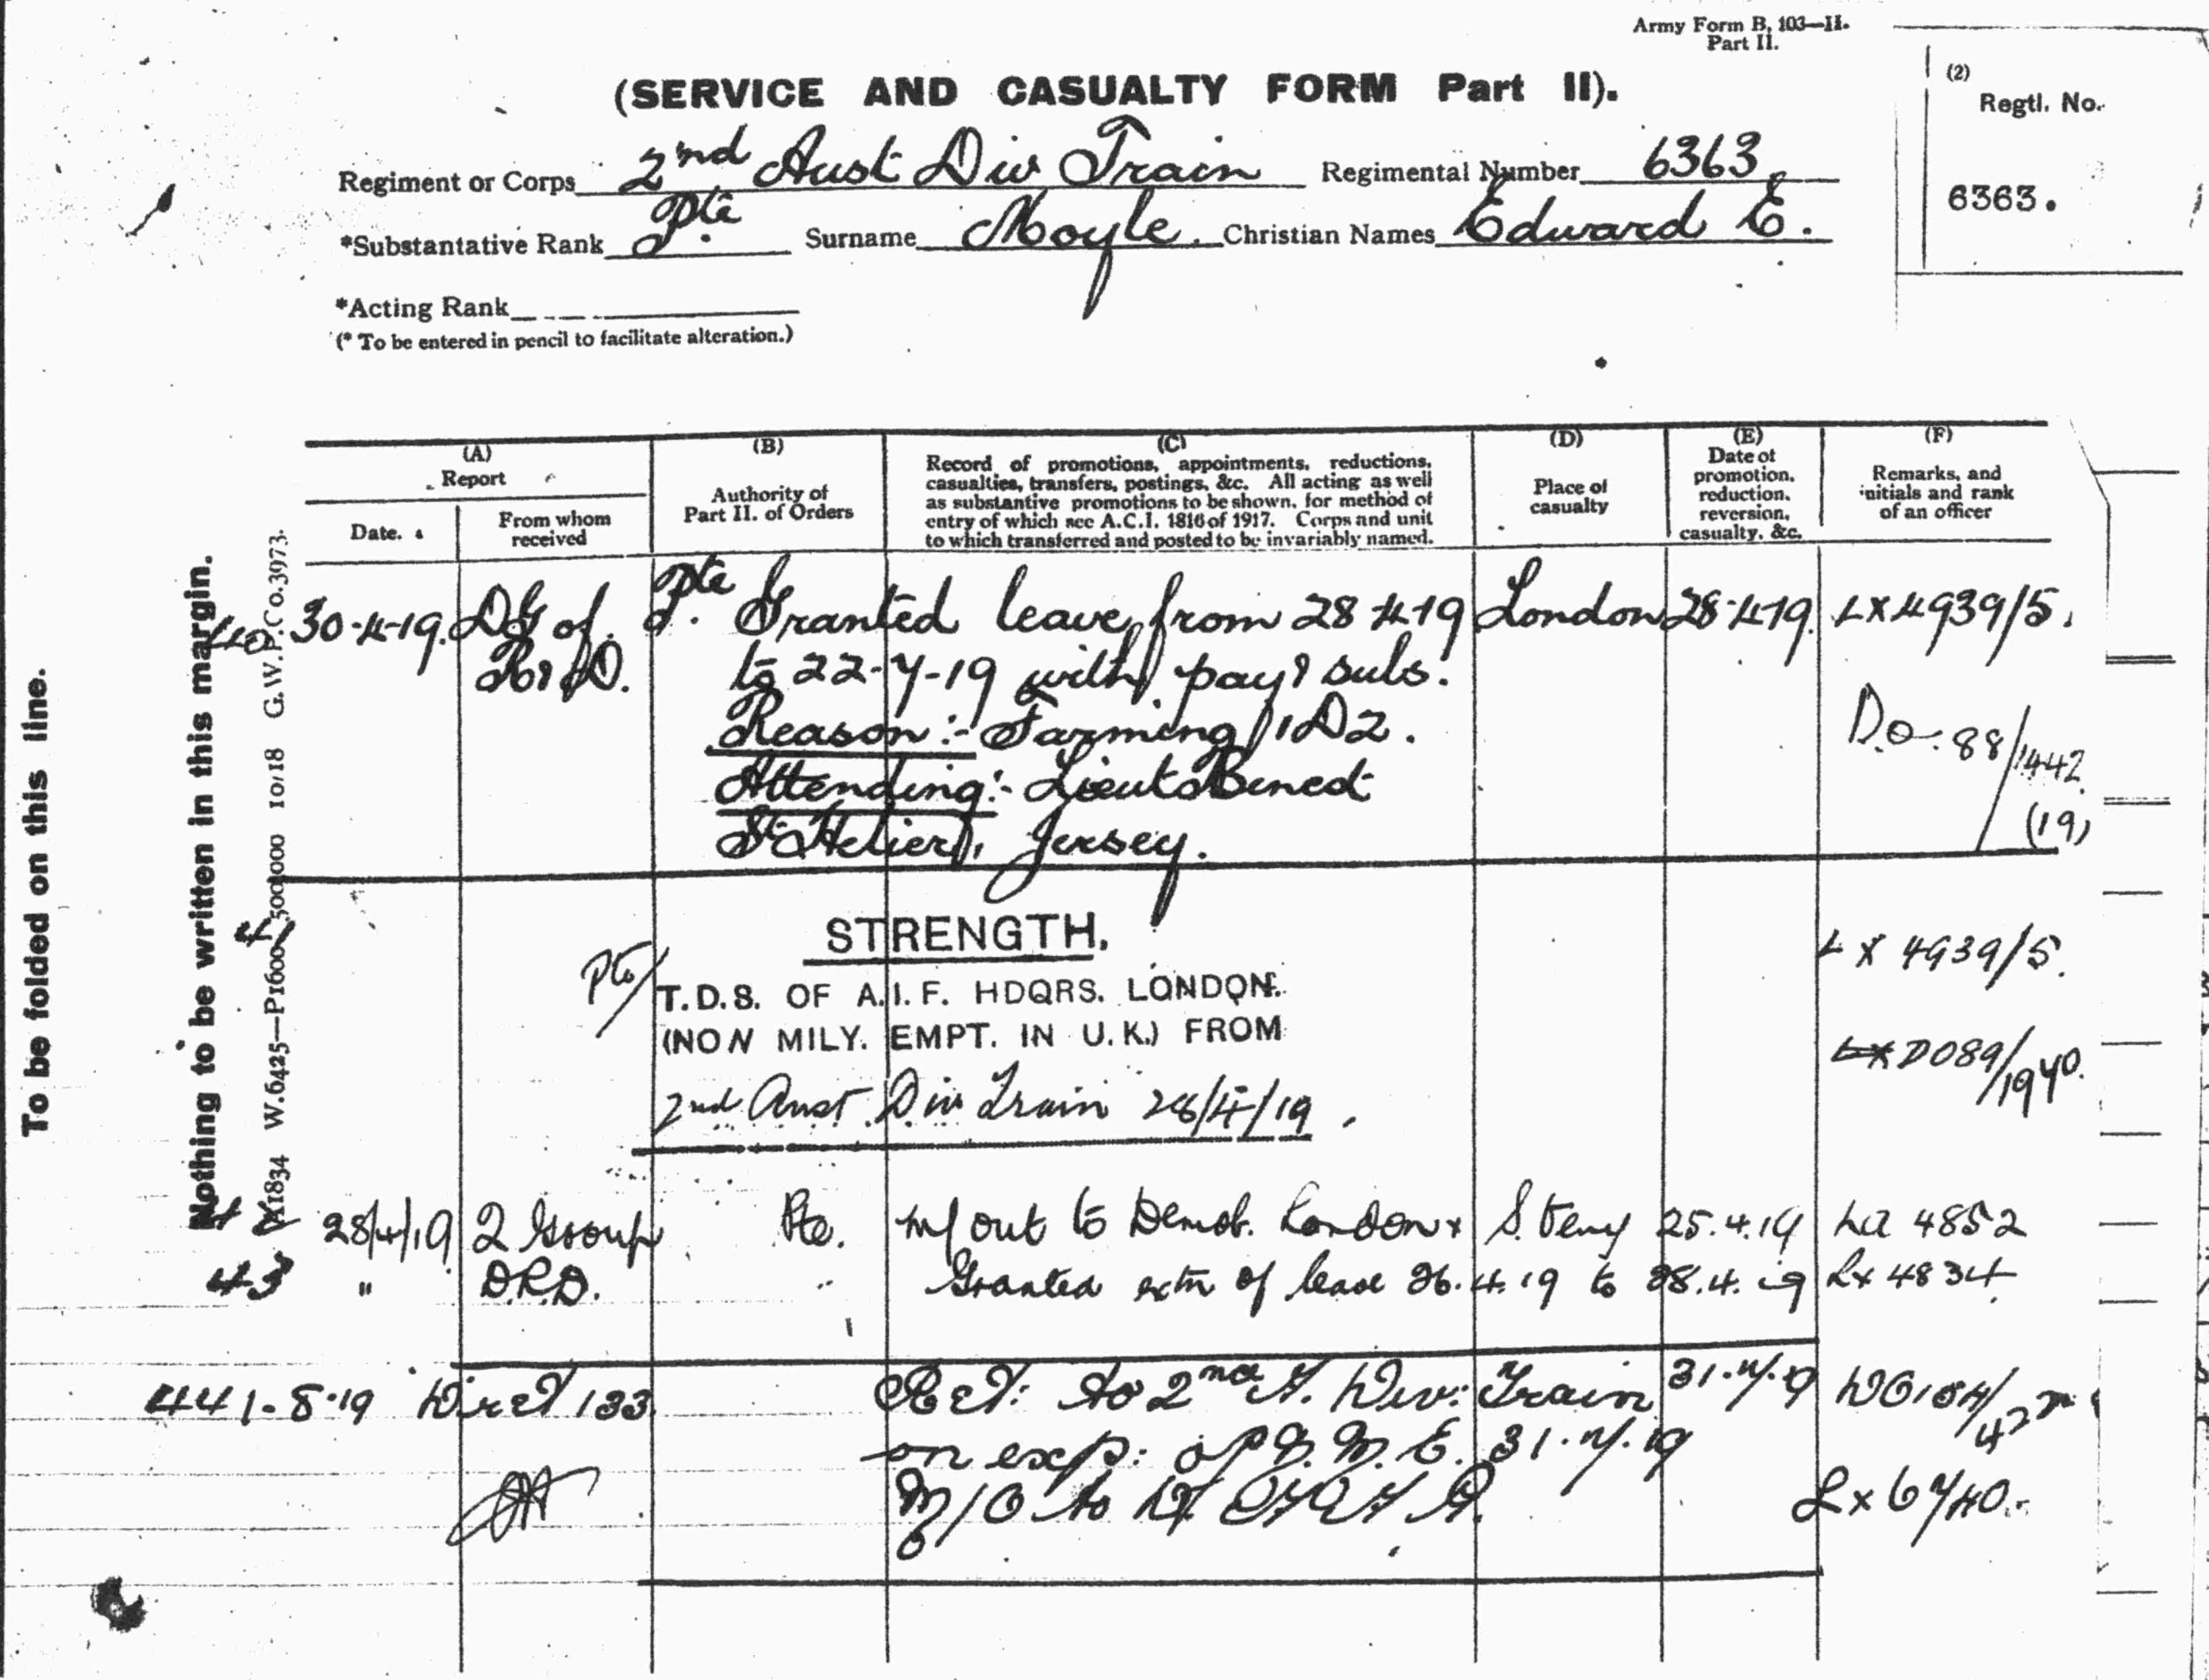 Army Form B, 103—II.
Part II.
(SERVICE AND CASUALTY FORM Part II).
(2)
Regtl. No.
6363.
Regiment or Corps 2nd Aust Div Train Regimental Number 6363
*Substantative Rank Pte Surname Moyle. Christian Names Edward E.
*Acting Rank
(* To be entered in pencil to facilitate alteration.)
To be folded on this line.
Nothing to be written in this margin.
X1834 W.6425—P1600 500,000 10/18 G.W.P.Co.3973.
(A)
Report
Date.
From whom
received
(B)
Authority of
Part II. of Orders
(C)
Record of promotions, appointments, reductions,
casualties, transfers, postings, &c. All acting as well
as substantive promotions to be shown, for method of
entry of which see A.C.I. 1816 of 1917. Corps and unit
to which transferred and posted to be invariably named.
(D)
Place of
casualty
(E)
Date of
promotion,
reduction,
reversion,
casualty, &c.
(F)
Remarks, and
initials and rank
of an officer
40 30-4-19. DG of Pte Granted leave from 28-4-19 London 28-4-19. LX4939/5.
to 22-7-19 with pay & subs.
Reason:- Farming 1D2. D.O. 88/1442
Attending:-
St Helier, Jersey. (19)
41 STRENGTH,
Pte/ T.D.S. OF A.I.F. HDQRS. LONDON. LX 4939/5.
(NON MILY. EMPT. IN U.K.) FROM DO89/1940.
2nd Aust. Div Train 28/4/19.
42 28/4/19 2 Group Pte. M/out to Demob. London 25.4.19 La 4852
43 " D.R.D. " Granted extn of leave 26.4.19 to 28.4.19 Lx 4834
44 1-8-19 133 Ret: to 2nd A. Div: Train 31.7.19
on exp: of N.M.E. 31.7.19
M/O to Lx 6740.